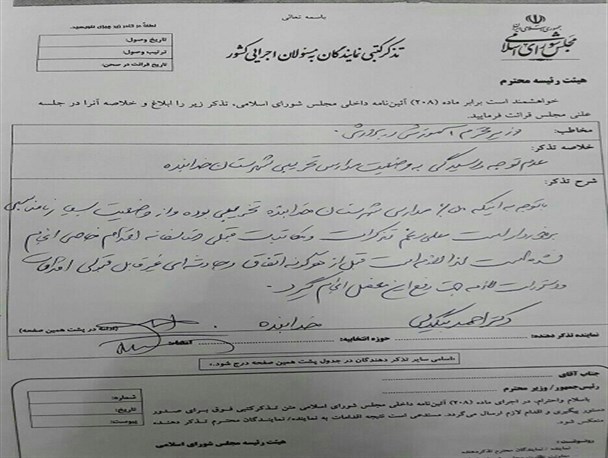 باسمه تعالی
جمهوری اسلامی ایران
مجلس شورای اسلامی
تذکر کتبی نمایندگان به مسئولان اجرایی کشور
تاریخ وصول:
ترتیب وصول:
تاریخ قرائت در صحن:
هیئت رئیسه محترم
خواهشمند است برابر ماده (۲۰۸) آئین‌نامه داخلی مجلس شورای اسلامی، تذکر زیر را ابلاغ و خلاصه آنرا در جلسه
علنی مجلس قرائت فرمایید.
مخاطب: وزیر محترم آموزش و پرورش
خلاصه تذکر:
عدم توجه و رسیدگی به وضعیت مدارس تخریبی شهرستان خدابنده
شرح تذکر:
باتوجه به اینکه مدارس شهرستان خدابنده تخریبی بوده و از وضعیت بسیار نامناسبی
برخوردار است علی‌رغم تذکرات و مکاتبات قبلی متأسفانه اقدام خاصی انجام
نشده است لذا لازم است قبل از هرگونه اتفاق و حادثه‌ای غیرقابل جبران
دستورات لازم جهت رفع این معضل انجام گیرد.
دکتر احمد بیگدلی خدابنده
نماینده تذکر دهنده: حوزه انتخابیه: امضاء: (ادامه در پشت همین صفحه)
«اسامی سایر تذکر دهندگان در جدول پشت همین صفحه درج شود.»
جناب آقای
رئیس‌جمهور/ وزیر محترم
شماره:
تاریخ:
پیوست:
باسلام واحترام، در اجرای ماده (۲۰۸) آئین‌نامه داخلی مجلس شورای اسلامی متن تذکر کتبی فوق برای صدور
دستور پیگیری و اقدام لازم ارسال می‌گردد. مستدعی است نتیجه اقدامات به نماینده/ نمایندگان محترم تذکر دهنده
منعکس شود.
هیئت رئیسه مجلس شورای اسلامی
رونوشت:
نماینده / نمایندگان محترم تذکردهنده